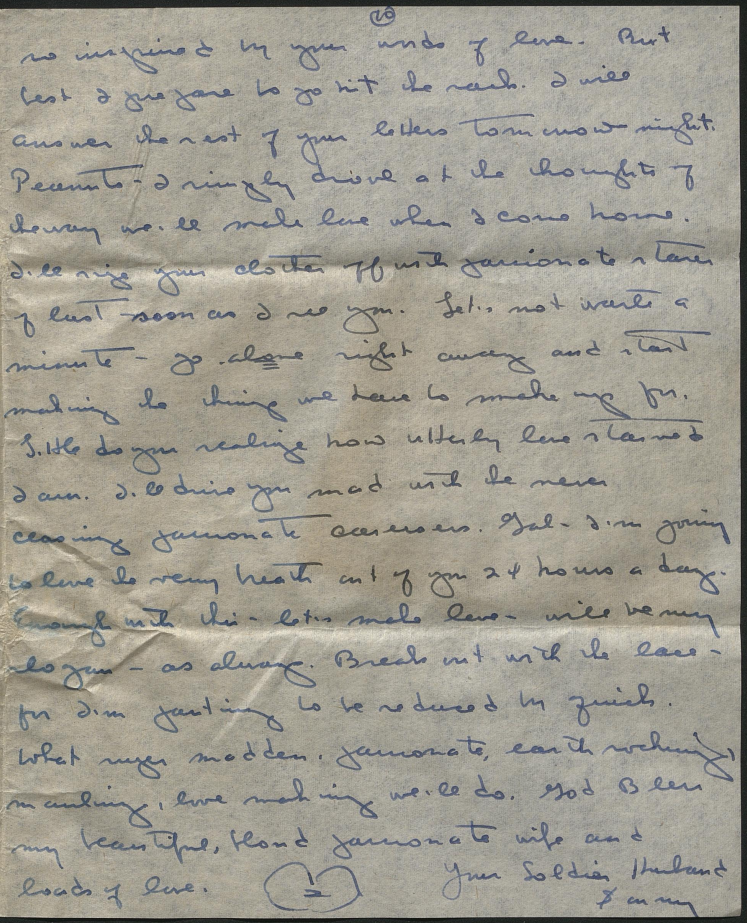 10
so inspired by your words of love. But
best I prepare to go hit the rack. I will
answer the rest of your letters tomorrow night.
Peanuts - I simply drool at the thoughts of
the way we'll make love when I come home.
I'll rip your clothes off with passionate stares
of lust soon as I see you. Let's not waste a
minute - go alone right away and start
making the thing we have to make up for.
Little do you realize how utterly love starved
I am. I'll drive you mad with the never
ceasing passionate caresses. Gal - I'm going
to love the very breath out of you 24 hours a day.
Enough with this - let's make love - will be my
slogan - as always. Break out with the lace -
for I'm panting to be reduced by quick.
What madden, passionate, earth
mauling, love making we'll do. God Bless
my beautiful, blond passionate wife and
loads of love. Your Soldier Husband